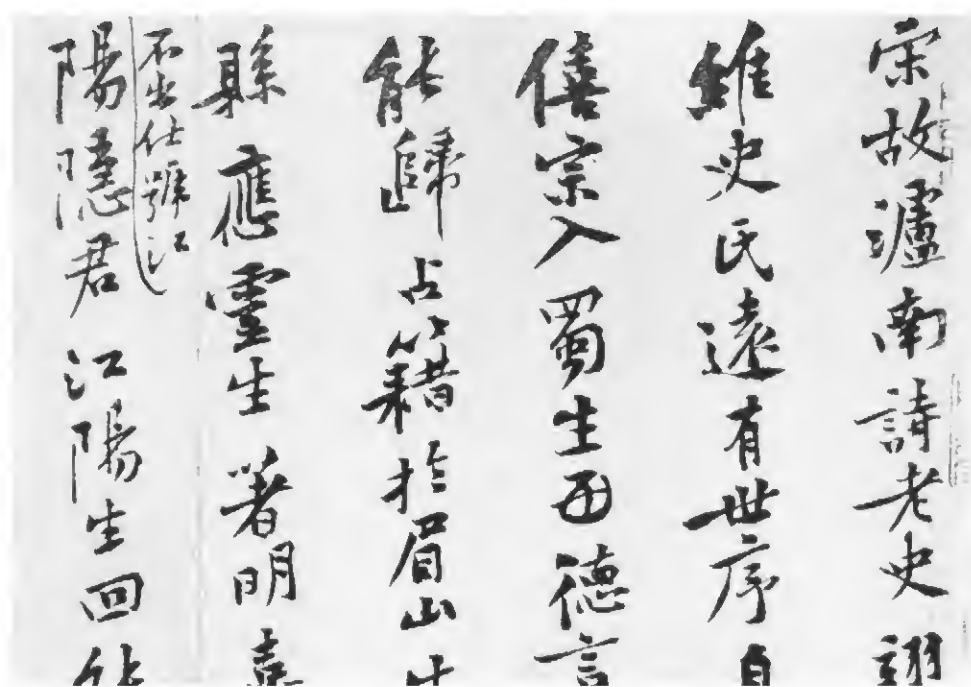 宋故瀘南詩老史翊
維史氏遠有世序自
僖宗入蜀生德言
能歸占籍於眉山
縣應靈生著明
不出仕號江
陽隱君江陽生回